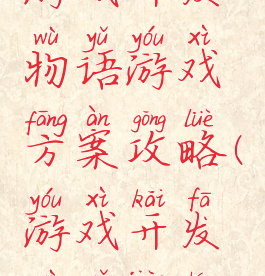 wù yǔ yóu xì
物语游戏
fāng àn gōng lüè
方案攻略(
yóu xì kāi fā
游戏开发